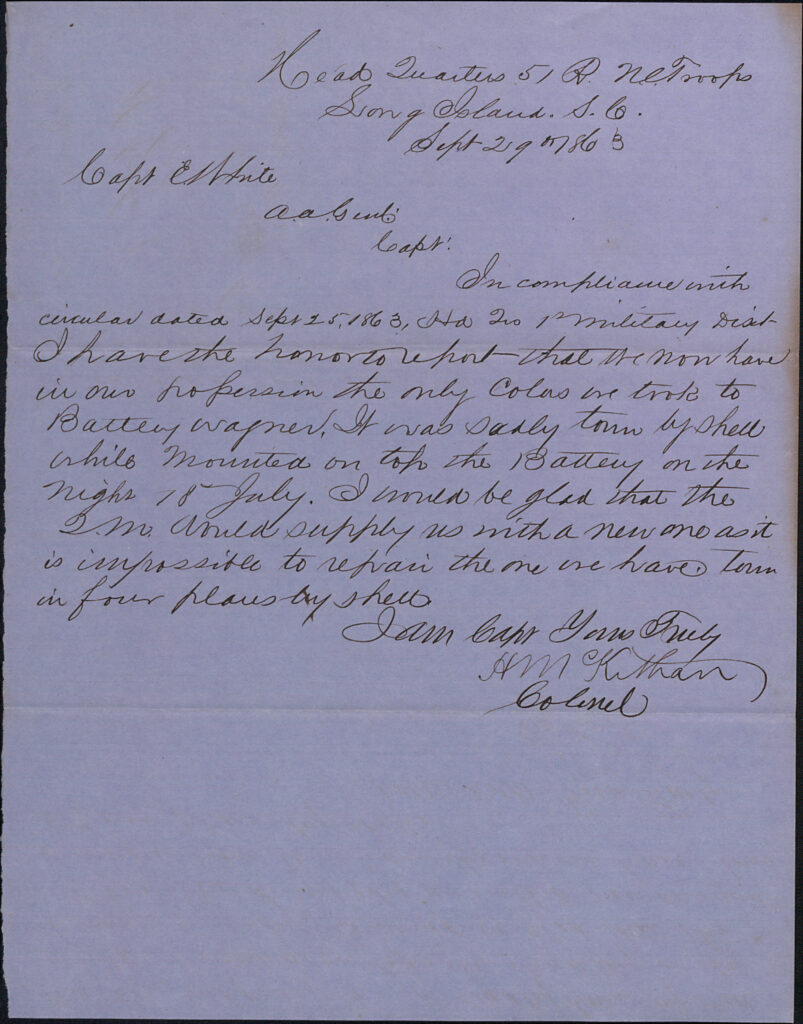 Head Quarters 51 R. N.C. Troops
Long Island. S. C.
Sept 29th 1863
Capt E White
A. A. Genl.
Capt.
In compliance with
circular dated Sept 25, 1863, Hd Qrs 1st Military Dist
I have the honor to report that we now have
in our possession the only Colors we took to
Battery Wagner, It was sadly torn by shell
while Mounted on top the Battery on the
night 18th July. I would be glad that the
Q. M. would supply us with a new one as it
is impossible to repair the one we have. torn
in four places by shell.
I am Capt Yours Truly
H McKethan
Colonel